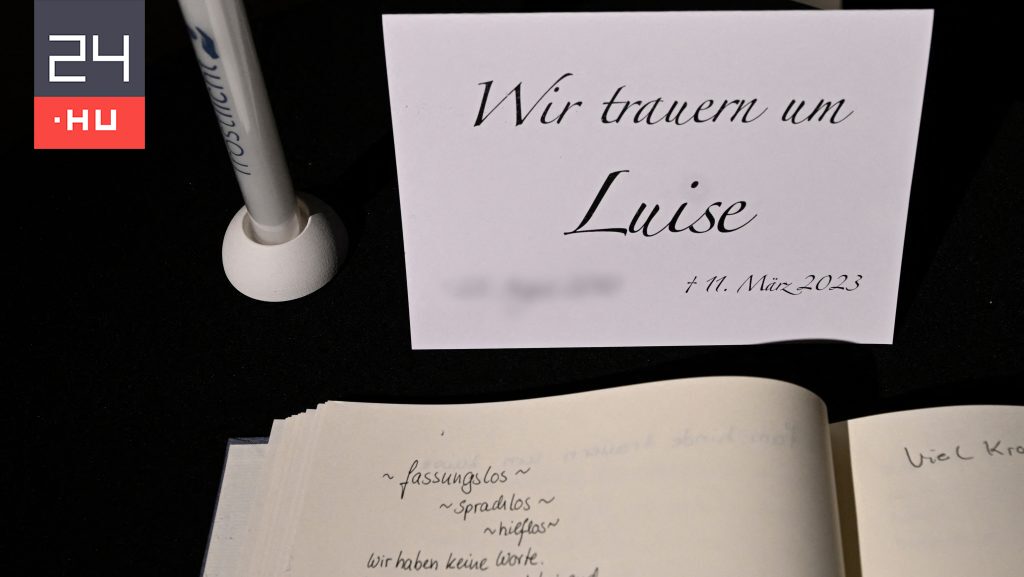 24
.HU
Trostlicht
Wir trauern um
Luise
† 11. März 2023
~ fassungslos ~
~ sprachlos ~
~ hilflos ~
wir haben keine Worte.
Viel